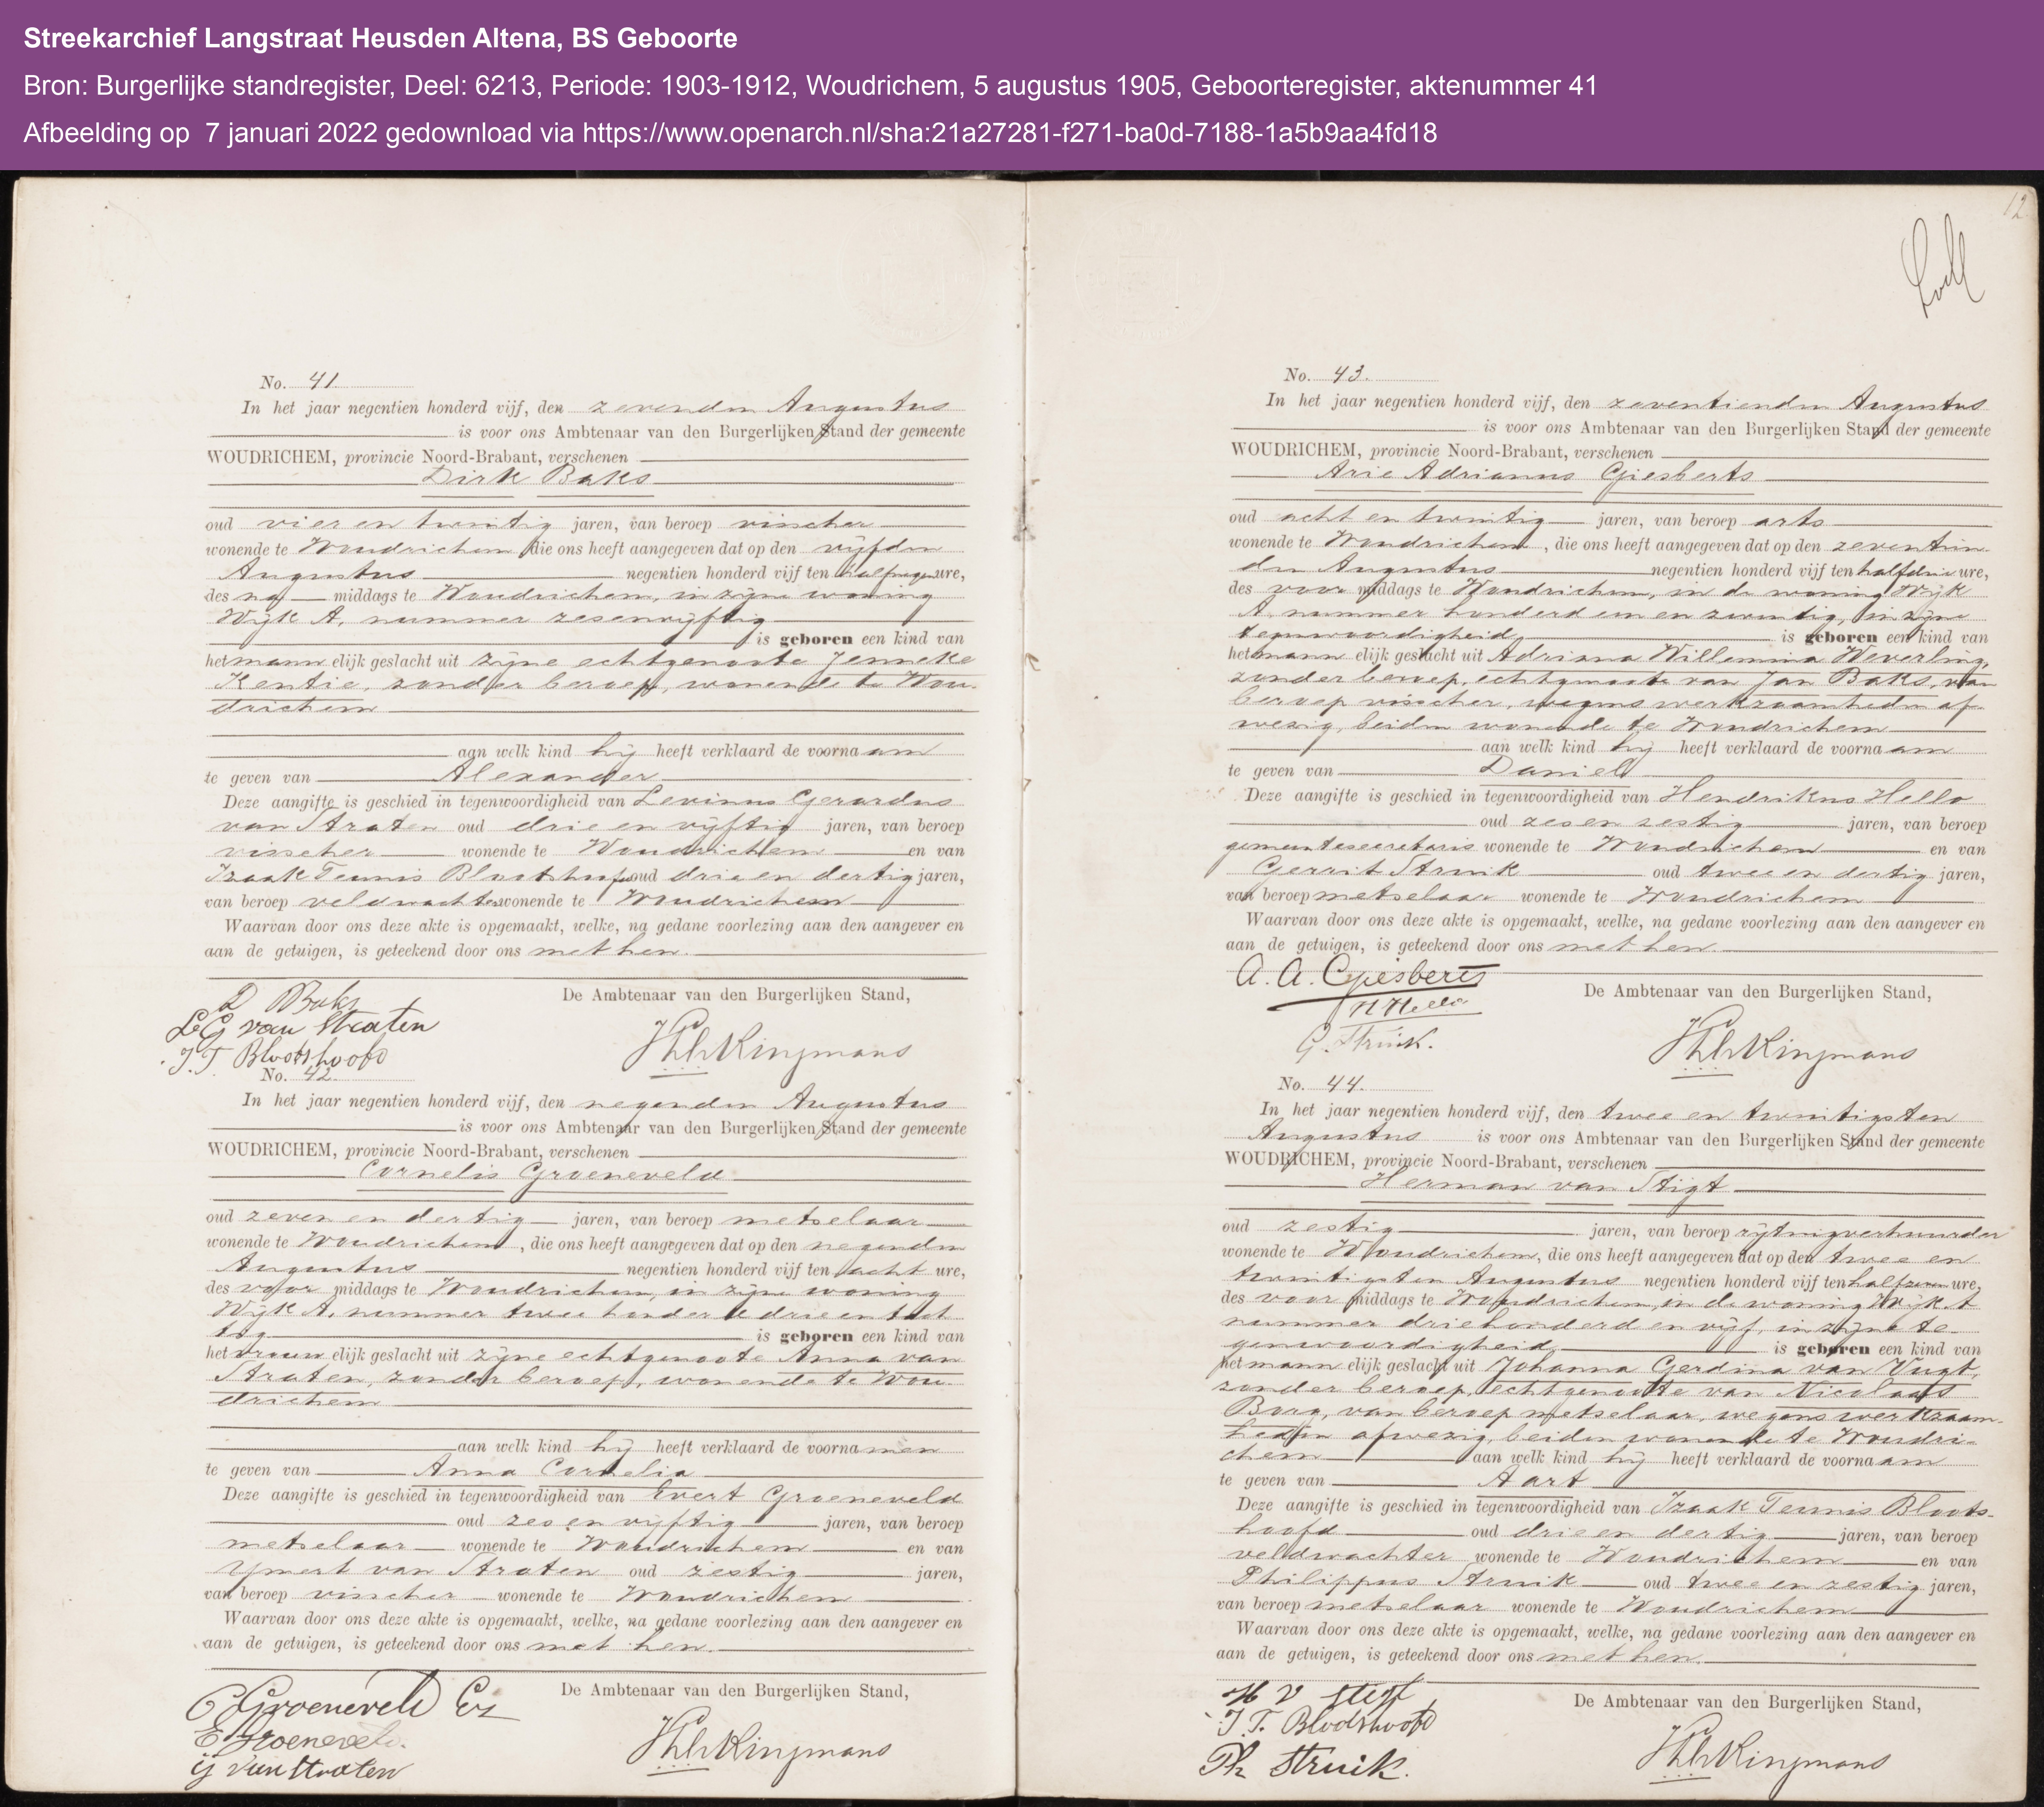 Streekarchief Langstraat Heusden Altena, BS Geboorte
Bron: Burgerlijke standregister, Deel: 6213, Periode: 1903-1912, Woudrichem, 5 augustus 1905, Geboorteregister, aktenummer 41
Afbeelding op 7 januari 2022 gedownload via https://www.openarch.nl/sha:21a27281-f271-ba0d-7188-1a5b9aa4fd18
No. 41
In het jaar negentien honderd vijf, den zevenden Augustus
is voor ons Ambtenaar van den Burgerlijken Stand der gemeente
WOUDRICHEM, provincie Noord-Brabant, verschenen
Dirk Baks
oud vier en twintig jaren, van beroep visscher
wonende te Woudrichem die ons heeft aangegeven dat op den vijfden
Augustus negentien honderd vijf ten half negen ure,
des na middags te Woudrichem, in zijne woning
Wijk A, nummer zesenvijftig
is geboren een kind van
het mann elijk geslacht uit zijne echtgenoote Jenneke
Kentie, zonder beroep, wonende te Wou-
drichem
aan welk kind hij heeft verklaard de voornaam
te geven van Alexander
Deze aangifte is geschied in tegenwoordigheid van Levinus Gerardus
van Straten oud drie en vijftig jaren, van beroep
visscher wonende te Woudrichem en van
Izaak Teunis Blootshoofd oud drie en dertig jaren,
van beroep veldwachter wonende te Woudrichem
Waarvan door ons deze akte is opgemaakt, welke, na gedane voorlezing aan den aangever en
aan de getuigen, is geteekend door ons met hen.
De Ambtenaar van den Burgerlijken Stand,
D Baks
L G van Straten
I. T. Blootshoofd
No. 42.
In het jaar negentien honderd vijf, den negenden Augustus
is voor ons Ambtenaar van den Burgerlijken Stand der gemeente
WOUDRICHEM, provincie Noord-Brabant, verschenen
Cornelis Groeneveld
oud zeven en dertig jaren, van beroep metselaar
wonende te Woudrichem, die ons heeft aangegeven dat op den negenden
Augustus negentien honderd vijf ten acht ure,
des voor middags te Woudrichem, in zijne woning
Wijk A, nummer twee honderd drie en tach
tig is geboren een kind van
het vrouw elijk geslacht uit zijne echtgenoote Anna van
Straten, zonder beroep, wonende te Wou-
drichem
aan welk kind hij heeft verklaard de voornamen
te geven van Anna Cornelia
Deze aangifte is geschied in tegenwoordigheid van Evert Groeneveld
oud zes en vijftig jaren, van beroep
metselaar wonende te Woudrichem en van
Ijmert van Straten oud zestig jaren,
van beroep visscher wonende te Woudrichem
Waarvan door ons deze akte is opgemaakt, welke, na gedane voorlezing aan den aangever en
aan de getuigen, is geteekend door ons met hen.
De Ambtenaar van den Burgerlijken Stand,
C Groeneveld Ez
E Groeneveld.
ij van Straten
12
No. 43.
In het jaar negentien honderd vijf, den zeventienden Augustus
is voor ons Ambtenaar van den Burgerlijken Stand der gemeente
WOUDRICHEM, provincie Noord-Brabant, verschenen
Arie Adrianus Giesberts
oud acht en twintig jaren, van beroep arts
wonende te Woudrichem, die ons heeft aangegeven dat op den zeventien-
den Augustus negentien honderd vijf ten half drie ure,
des voor middags te Woudrichem, in de woning Wijk
A nummer honderd een en twintig, in zijne
tegenwoordigheid is geboren een kind van
het mann elijk geslacht uit Adriana Willemina Weverling,
zonder beroep, echtgenoote van Jan Baks, van
beroep visscher, wegens werkzaamheden af-
wezig, beiden wonende te Woudrichem
aan welk kind hij heeft verklaard de voornaam
te geven van Daniel
Deze aangifte is geschied in tegenwoordigheid van Hendrikus Hello
oud zes en zestig jaren, van beroep
gemeentesecretaris wonende te Woudrichem en van
Gerrit Struik oud twee en dertig jaren,
van beroep metselaar wonende te Woudrichem
Waarvan door ons deze akte is opgemaakt, welke, na gedane voorlezing aan den aangever en
aan de getuigen, is geteekend door ons met hen.
A. A. Giesberts
De Ambtenaar van den Burgerlijken Stand,
H Hello
G. Struik.
No. 44.
In het jaar negentien honderd vijf, den twee en twintigsten
Augustus is voor ons Ambtenaar van den Burgerlijken Stand der gemeente
WOUDRICHEM, provincie Noord-Brabant, verschenen
Herman van Stigt
oud zestig jaren, van beroep rijtuigverhuurder
wonende te Woudrichem, die ons heeft aangegeven dat op den twee en
twintigsten Augustus negentien honderd vijf ten half zeven ure,
des voor middags te Woudrichem, in de woning Wijk A
nummer driehonderd en vijf, in zijne te-
genwoordigheid is geboren een kind van
het mann elijk geslacht uit Johanna Gerdina van Vugt,
zonder beroep, echtgenoote van Nicolaas
Borg, van beroep metselaar, wegens werkzaam-
heden afwezig, beiden wonende te Woudri-
chem aan welk kind hij heeft verklaard de voornaam
te geven van Aart
Deze aangifte is geschied in tegenwoordigheid van Izaak Teunis Bloots-
hoofd oud drie en dertig jaren, van beroep
veldwachter wonende te Woudrichem en van
Philippus Struik oud twee en zestig jaren,
van beroep metselaar wonende te Woudrichem
Waarvan door ons deze akte is opgemaakt, welke, na gedane voorlezing aan den aangever en
aan de getuigen, is geteekend door ons met hen.
H V Stigt
De Ambtenaar van den Burgerlijken Stand,
I. T. Blootshoofd
Ph Struik.